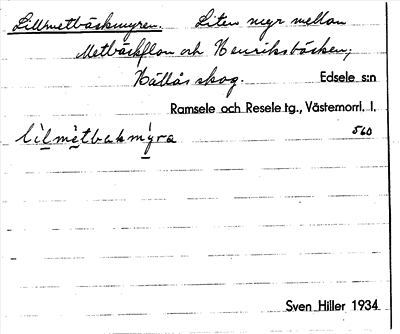 Lillmetbäckmyren. Liten myr mellan
Metbäckflon och Henriksbäcken,
Källås skog. Edsele s:n
Ramsele och Resele tg., Västernorrl. l.
lilmetbakmyra 560
Sven Hiller 1934